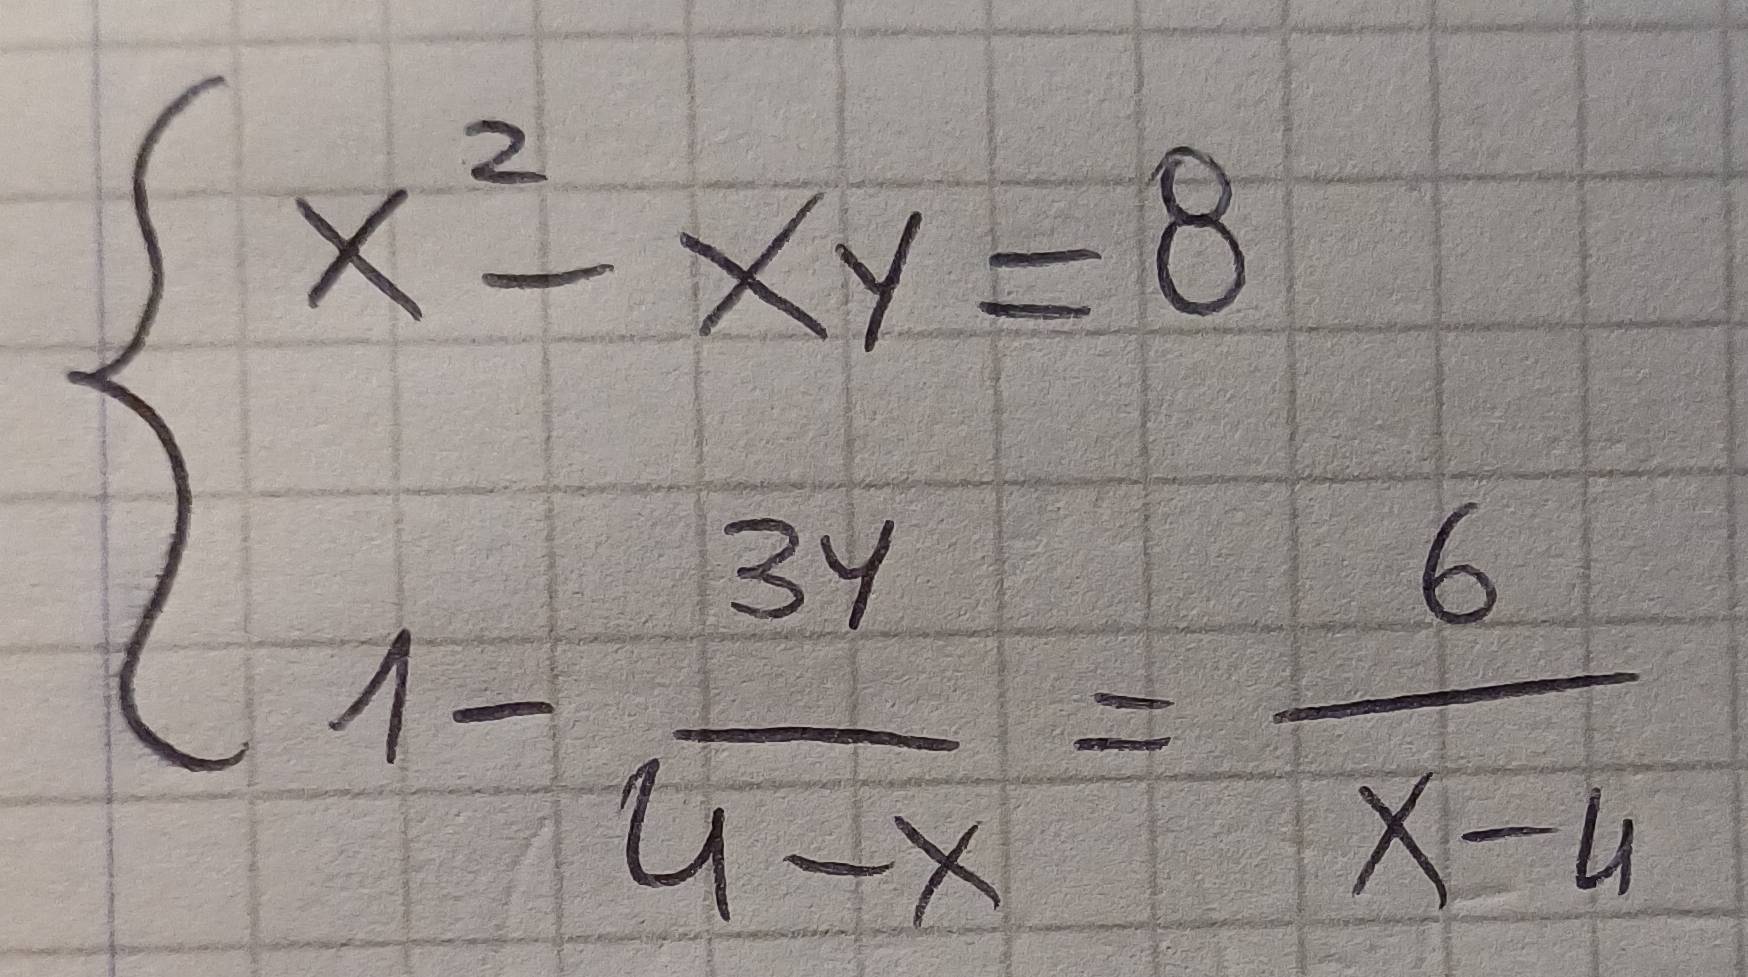 x² - xy = 8
1 - 3y/(4-x) = 6/(x-4)